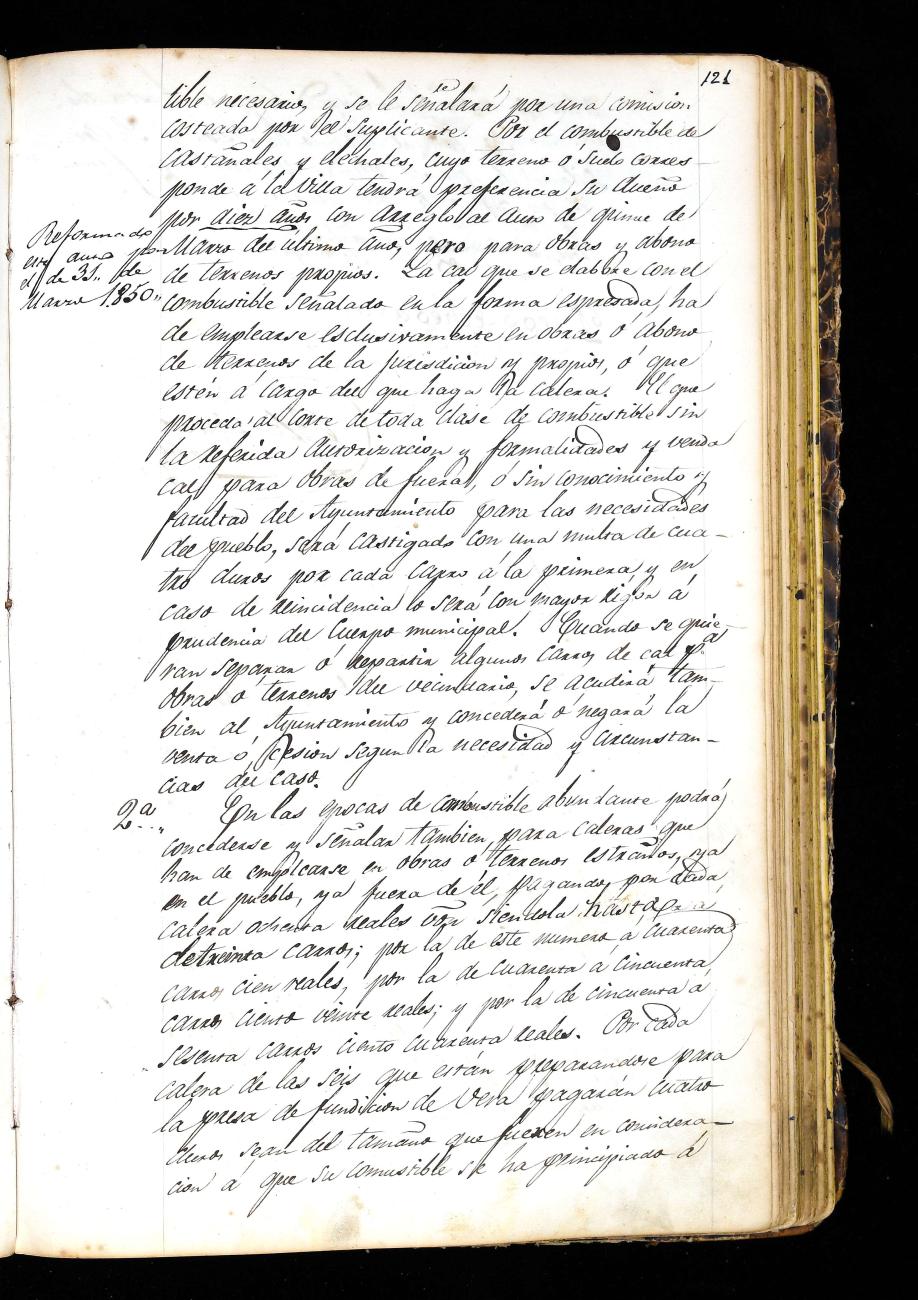 121
tible necesario, y se le señalará por una comision
costeada por el Suplicante. Por el combustible de
castañales y elechales, cuyo terreno ó suelo corres-
ponde á la Villa tendrá preferencia su dueño
por diez años con arreglo al auto de quince de
Marzo del último año, pero para obras y abono
de terrenos propios. La cal que se elabore con el
combustible señalado en la forma espresada, ha
de emplearse esclusivamente en obras ó abono
de terrenos de la jurisdicion y propios, ó que
estén á cargo del que haga la calera. El que
proceda al corte de toda clase de combustible sin
la referida autorizacion y formalidades y venda
cal para obras de fuera, ó sin conocimiento y
facultad del Ayuntamiento para las necesidades
del pueblo, será castigado con una multa de cua-
tro duros por cada carro á la primera y en
caso de reincidencia lo será con mayor rigor á
prudencia del Cuerpo municipal. Cuando se quie-
ran separar ó repartir algunos carros de cal pa
obras o terrenos del vecindario, se acudirá tam-
bien al Ayuntamiento y concederá o negará la
venta ó cesion segun la necesidad y circunstan-
cias del caso.
Reformado
este auto por
el de 31,, de
Marzo 1.850,,
2a..,, En las epocas de combustible abundante podrá
concederse y señalar tambien para caleras que
han de emplearse en obras o terrenos estraños, ya
en el pueblo, ya fuera de él, pagando por cada
calera ochenta reales von siendola hasta
de treinta carros; por la de este numero á cuarenta
carros cien reales, por la de cuarenta á cincuenta
carros ciento veinte reales; y por la de cincuenta á
sesenta carros ciento cuarenta reales. Por cada
calera de las seis que están preparandose para
la presa de fundicion de Vera pagarán cuatro
duros sean del tamaño que fueren en considera-
cion á que su comustible se ha principiado á